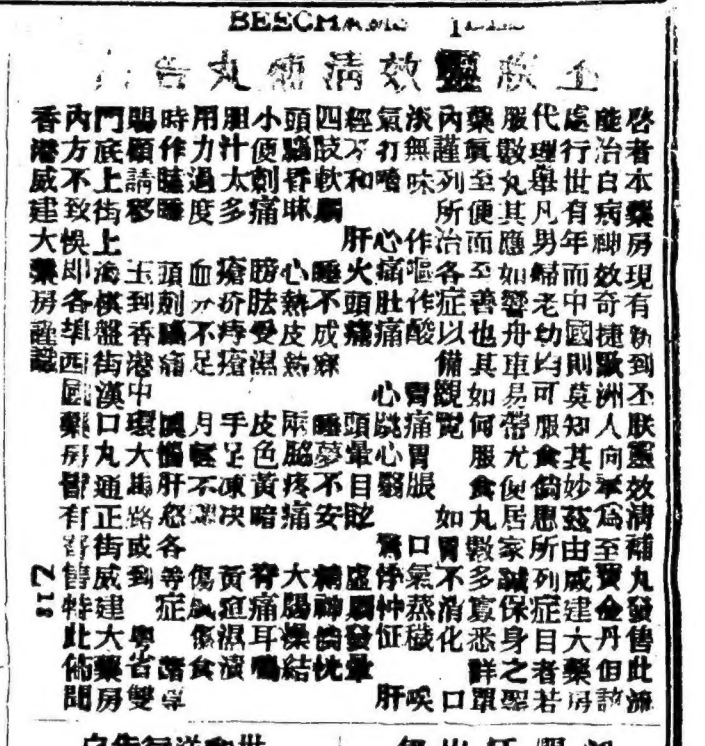 BEECHAMS PILLS
丕朕靈效清補丸告白
啓者本藥房現有新到丕朕靈效清補丸發售此藥
能治白病神效奇捷歐洲人向奉爲至寶金丹但該
處行世有年而中國則莫知其妙茲由威建大藥房
代理舉凡男婦老幼均可服食倘患所列症目者若
服數丸其應如響舟車易帶尤便居家誠保身之聖
藥眞至便而至善也其如何服食丸數多寡悉詳單
內謹列所治各症以備觀覽 如胃不消化 口
淡無味 作嘔作酸 胃痛胃脹 口氣蒸穢 唉
氣打噎 心痛肚痛 心跳心翳 驚悸怔忡 肝
經不和 肝火頭痛 頭暈目眩 虛弱發暈
四肢軟弱 睡不成寐 睡夢不安 精神恍惚
頭腦昏眛 心熱皮熱 兩脇疼痛 大腸燥結
小便刺痛 膀胱受濕 皮色黃暗 脊痛耳鳴
胆汁太多 瘡疥痔瘡 手足凍决 黃疸濕瀆
用力過度 血分不足 月經不調 傷風傷食
時作瞌睡 頭刺腦痛 煩惱肝忿各等症 諸尊
賜顧請移 玉到香港中環大馬路或到 粤省雙
門底上街上海棋盤街漢口丸通正街威建大藥房
內方不致悞卽各埠西國藥房皆有寄售特此佈聞
香港威建大藥房謹識
乙18